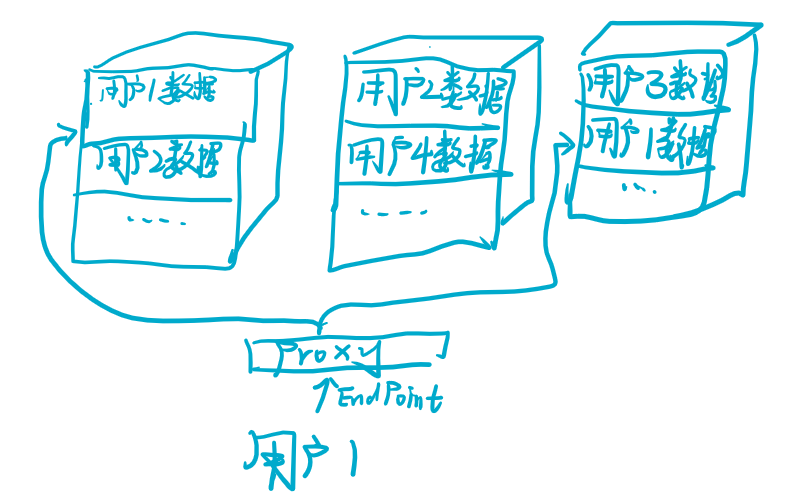 用户1数据
用户2数据
.....
用户2数据
用户4数据
.....
用户3数据
用户1数据
....
Proxy
EndPoint
用户1